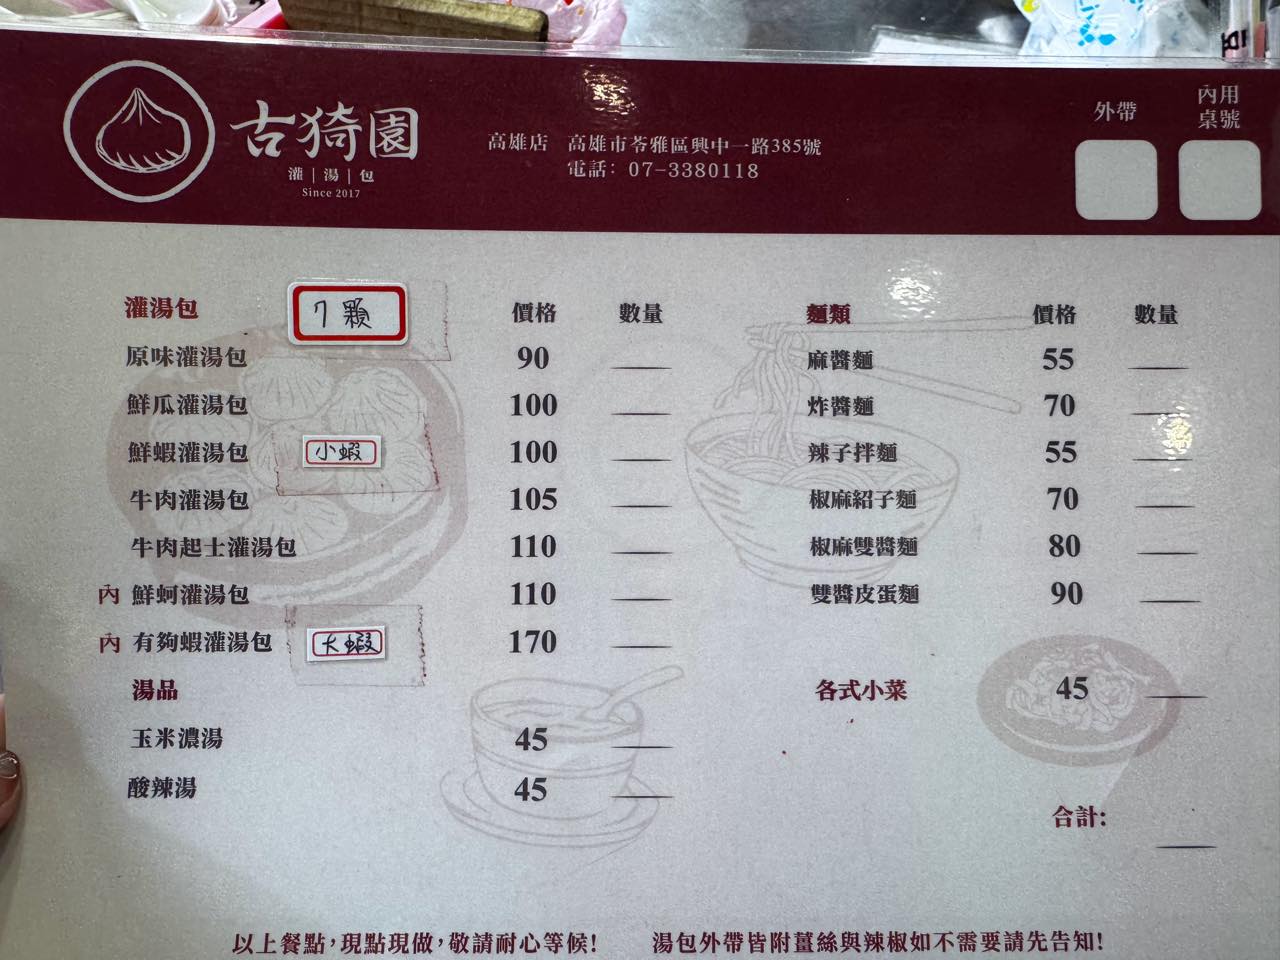 古猗園
灌|湯|包
Since 2017
高雄店 高雄市苓雅區興中一路385號
電話: 07-3380118
外帶
內用
桌號
灌湯包 7顆 價格 數量
原味灌湯包 90
鮮瓜灌湯包 100
鮮蝦灌湯包 小蝦 100
牛肉灌湯包 105
牛肉起士灌湯包 110
內 鮮蚵灌湯包 110
內 有夠蝦灌湯包 大蝦 170
湯品
玉米濃湯 45
酸辣湯 45
麵類 價格 數量
麻醬麵 55
炸醬麵 70
辣子拌麵 55
椒麻紹子麵 70
椒麻雙醬麵 80
雙醬皮蛋麵 90
各式小菜 45
合計:
以上餐點,現點現做,敬請耐心等候!
湯包外帶皆附薑絲與辣椒如不需要請先告知!